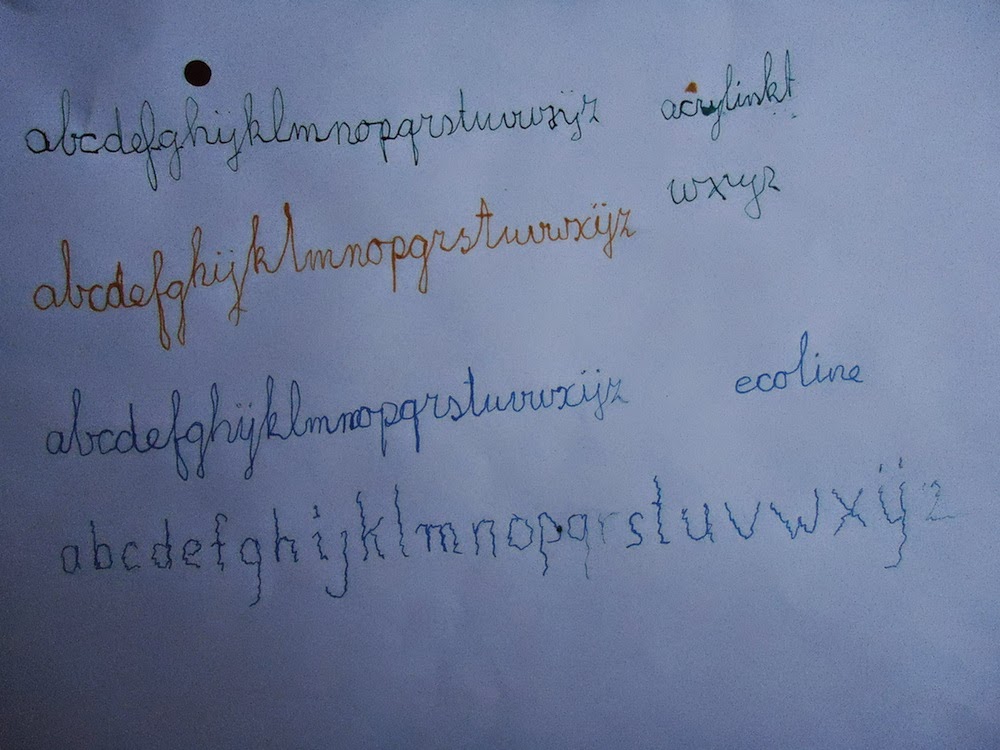 abcdefghijklmnopqrstuvwxijz acrylinkt
wxyz
abcdefghijklmnopqrstuvwxijz
abcdefghijklmnopqrstuvwxijz ecoline
abcdefghijklmnopqrstuvwxijz